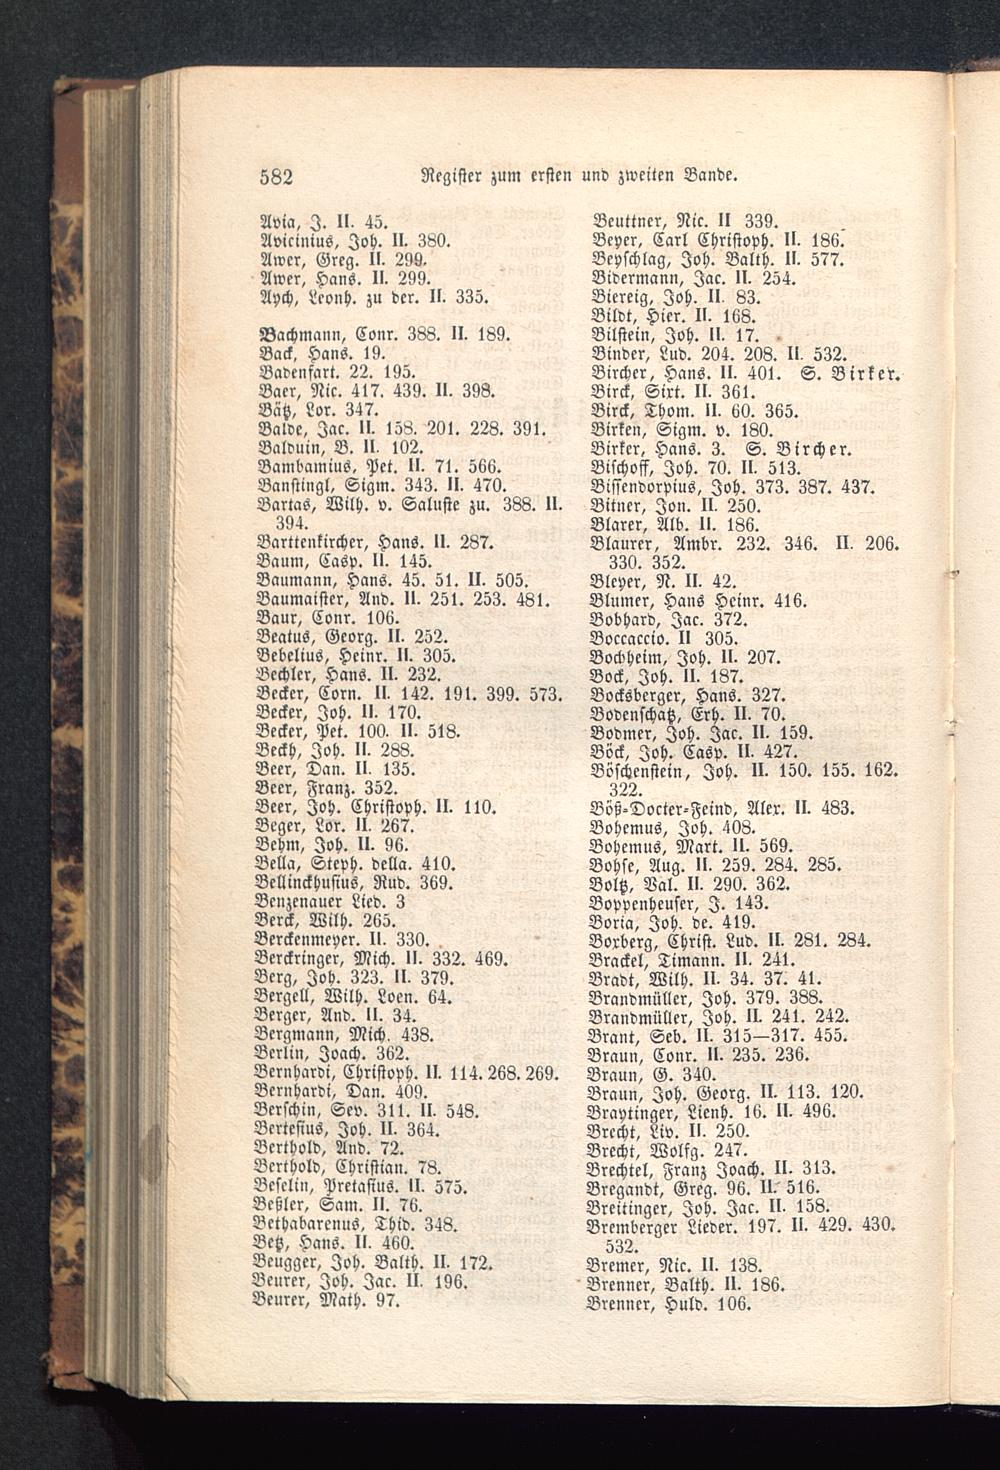 582 Register zum ersten und zweiten Bande.
Avia, J. II. 45.
Avicinius, Joh. II. 380.
Awer, Greg. II. 299.
Awer, Hans. II. 299.
Aych, Leonh. zu der. II. 335.
Bachmann, Conr. 388. II. 189.
Back, Hans. 19.
Badenfart. 22. 195.
Baer, Nic. 417. 439. II. 398.
Bätz, Lor. 347.
Balde, Jac. II. 158. 201. 228. 391.
Balduin, B. II. 102.
Bambamius, Pet. II. 71. 566.
Banstingl, Sigm. 343. II. 470.
Bartas, Wilh. v. Saluste zu. 388. II.
394.
Barttenkircher, Hans. II. 287.
Baum, Casp. II. 145.
Baumann, Hans. 45. 51. II. 505.
Baumaister, And. II. 251. 253. 481.
Baur, Conr. 106.
Beatus, Georg. II. 252.
Bebelius, Heinr. II. 305.
Bechler, Hans. II. 232.
Becker, Corn. II. 142. 191. 399. 573.
Becker, Joh. II. 170.
Becker, Pet. 100. II. 518.
Beckh, Joh. II. 288.
Beer, Dan. II. 135.
Beer, Franz. 352.
Beer, Joh. Christoph. II. 110.
Beger, Lor. II. 267.
Behm, Joh. II. 96.
Bella, Steph. della. 410.
Bellinckhusius, Rud. 369.
Benzenauer Lied. 3
Berck, Wilh. 265.
Berckenmeyer. II. 330.
Berckringer, Mich. II. 332. 469.
Berg, Joh. 323. II. 379.
Bergell, Wilh. Loen. 64.
Berger, And. II. 34.
Bergmann, Mich. 438.
Berlin, Joach. 362.
Bernhardi, Christoph. II. 114. 268. 269.
Bernhardi, Dan. 409.
Berschin, Sev. 311. II. 548.
Bertesius, Joh. II. 364.
Berthold, And. 72.
Berthold, Christian. 78.
Beselin, Pretasius. II. 575.
Beßler, Sam. II. 76.
Bethabarenus, Thid. 348.
Betz, Hans. II. 460.
Beugger, Joh. Balth. II. 172.
Beurer, Joh. Jac. II. 196.
Beurer, Math. 97.
Beuttner, Nic. II 339.
Beyer, Carl Christoph. II. 186.
Beyschlag, Joh. Balth. II. 577.
Bidermann, Jac. II. 254.
Biereig, Joh. II. 83.
Bildt, Hier. II. 168.
Bilstein, Joh. II. 17.
Binder, Lud. 204. 208. II. 532.
Bircher, Hans. II. 401. S. Birker.
Birck, Sixt. II. 361.
Birck, Thom. II. 60. 365.
Birken, Sigm. v. 180.
Birker, Hans. 3. S. Bircher.
Bischoff, Joh. 70. II. 513.
Bissendorpius, Joh. 373. 387. 437.
Bitner, Jon. II. 250.
Blarer, Alb. II. 186.
Blaurer, Ambr. 232. 346. II. 206.
330. 352.
Bleyer, N. II. 42.
Blumer, Hans Heinr. 416.
Bobhard, Jac. 372.
Boccaccio. II 305.
Bochheim, Joh. II. 207.
Bock, Joh. II. 187.
Bocksberger, Hans. 327.
Bodenschatz, Erh. II. 70.
Bodmer, Joh. Jac. II. 159.
Böck, Joh. Casp. II. 427.
Böschenstein, Joh. II. 150. 155. 162.
322.
Böß-Docter-Feind, Alex. II. 483.
Bohemus, Joh. 408.
Bohemus, Mart. II. 569.
Bohse, Aug. II. 259. 284. 285.
Boltz, Val. II. 290. 362.
Boppenheuser, J. 143.
Boria, Joh. de. 419.
Boxberg, Christ. Lud. II. 281. 284.
Brackel, Timann. II. 241.
Bradt, Wilh. II. 34. 37. 41.
Brandmüller, Joh. 379. 388.
Brandmüller, Joh. II. 241. 242.
Brant, Seb. II. 315—317. 455.
Braun, Conr. II. 235. 236.
Braun, G. 340.
Braun, Joh. Georg. II. 113. 120.
Braytinger, Lienh. 16. II. 496.
Brecht, Liv. II. 250.
Brecht, Wolfg. 247.
Brechtel, Franz Joach. II. 313.
Bregandt, Greg. 96. II. 516.
Breitinger, Joh. Jac. II. 158.
Bremberger Lieder. 197. II. 429. 430.
532.
Bremer, Nic. II. 138.
Brenner, Balth. II. 186.
Brenner, Huld. 106.